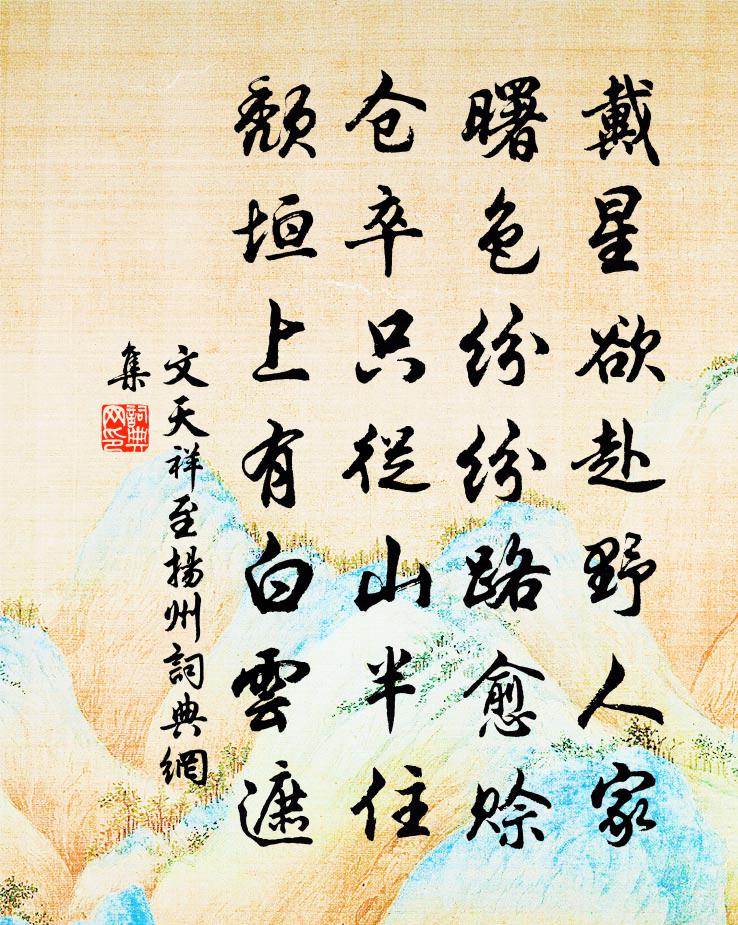 戴星欲赴野人家
曙色纷纷路愈赊
仓卒只從山半住
颓垣上有白雲遮
文天祥至揚州詞典網
集
詞典网印